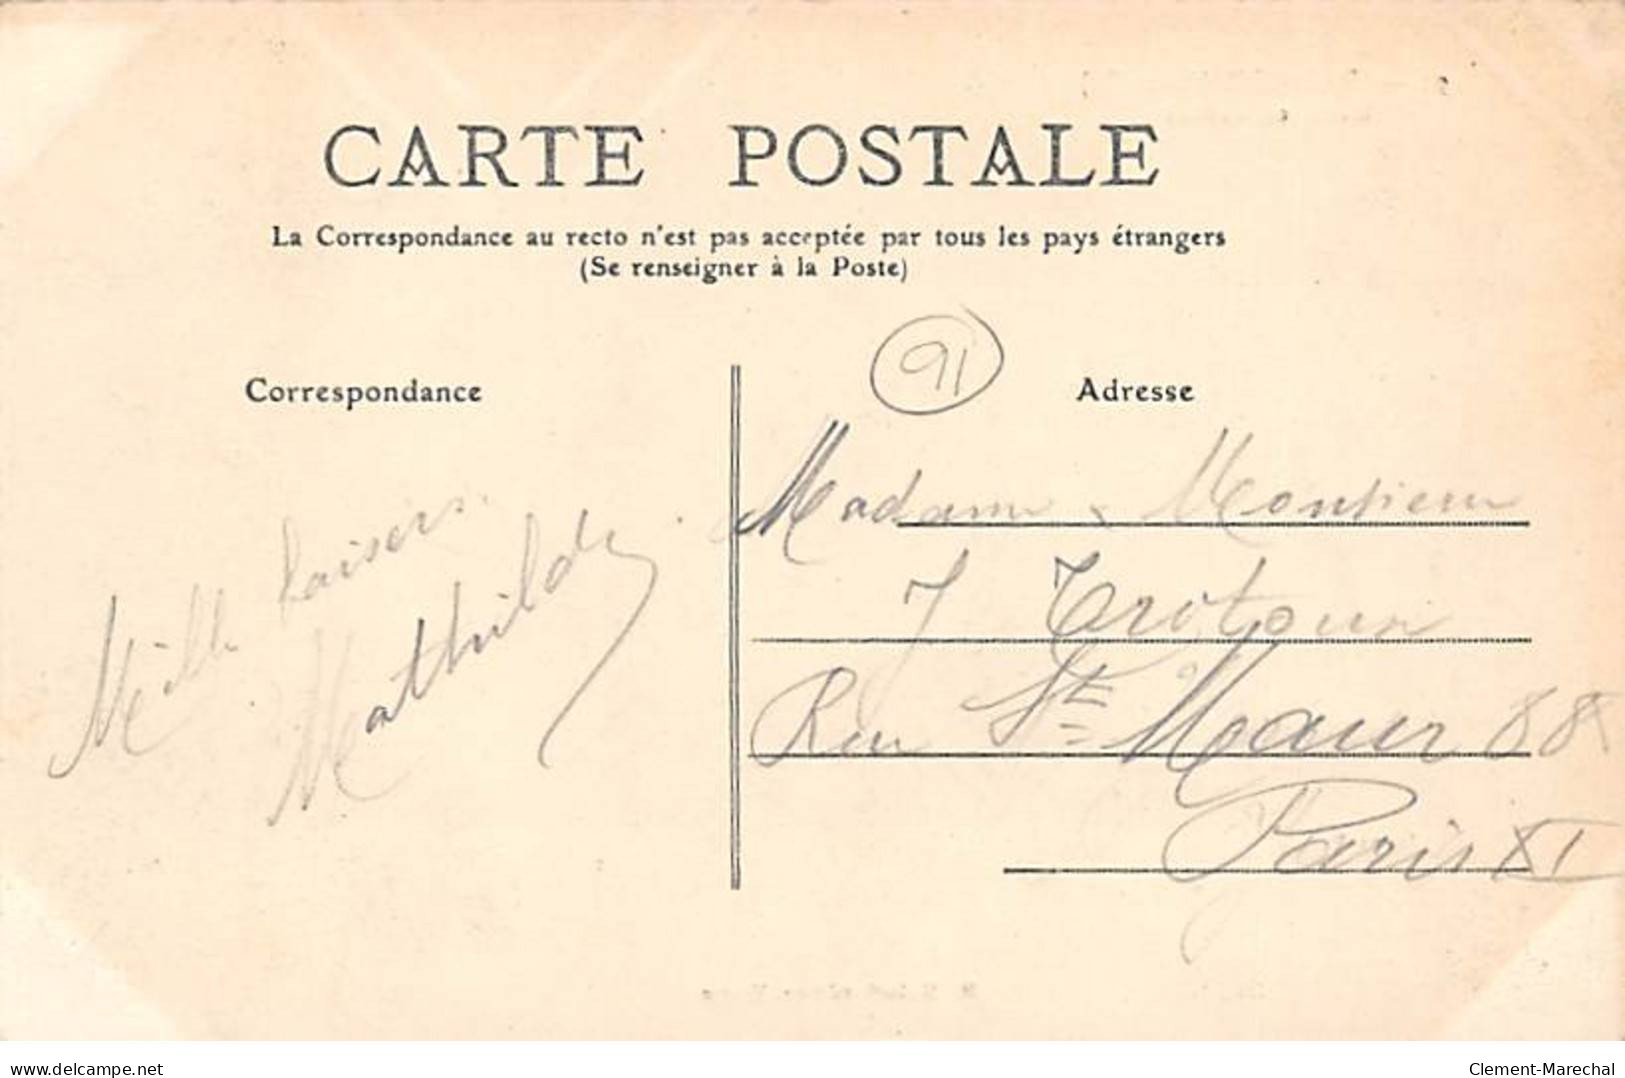 CARTE POSTALE
La Correspondance au recto n'est pas acceptée par tous les pays étrangers
(Se renseigner à la Poste)
91
Correspondance
Mille baisers
Mathilde
Adresse
Madame & Monsieur
J
Rue St Maur 88
Paris XI
delcampe.net
Clement-Marechal